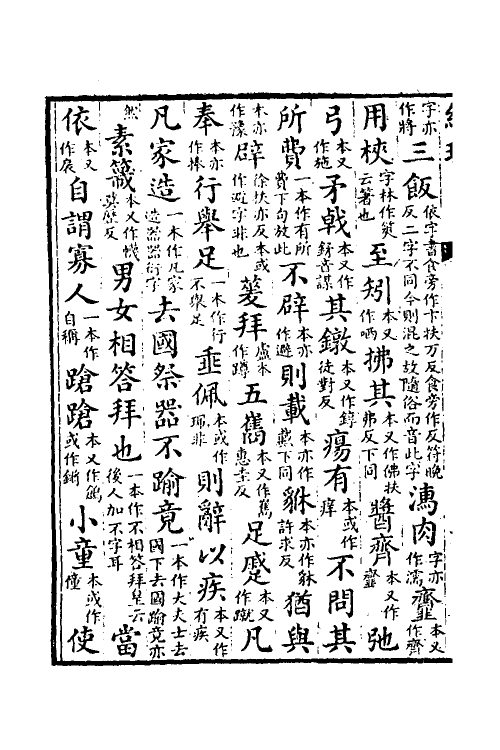 字亦作將三飯依字書食旁作卞扶万反食旁作反符晚反二字不同今則混之故隨俗而音此字肉字亦作濡齏本又作齊
用梜字林作筴云箸也至矧本又作哂拂其本又作佛扶弗反下同醬齊本又作齏弛
弓本又作施矛戟本又作鉾音謀其鐓本又作錞徒對反瘍有本或作痒不問其
所費一本作有所費下句放此不辟本亦作避則載本亦作戴下同貅本亦作許求反猶與
本亦作豫辟徐扶亦反本或作避字非也蓌拜盧本作蹲五巂本又作惠圭反足蹙本又作蹴凡
奉本亦作捧行舉足一本作行不舉足垂佩本或作珮非則辭以疾本又作有疾
凡家造一本作凡家造器器衍字去國祭器不踰竟一本作大夫士去國下去國踰竟亦
然素簚本又作幭莫歷反男女相答拜也一本作不相答拜皇云後人加不字耳當
依本又作扆自謂寡人一本作自稱蹌蹌本又作鶬或作鏘小童本或作僮使